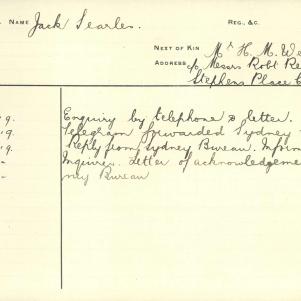 NAME Jack Searles. REG., &C.
NEXT OF KIN Mr H. M. We
ADDRESS c/o Messrs Robt Re
Stephens Place
9. Enquiry by telephone & letter.
9. Telegram forwarded Sydney
9. Reply from Sydney Bureau. Inform
" Inquirer. Letter of acknowledgeme
" ney Bureau